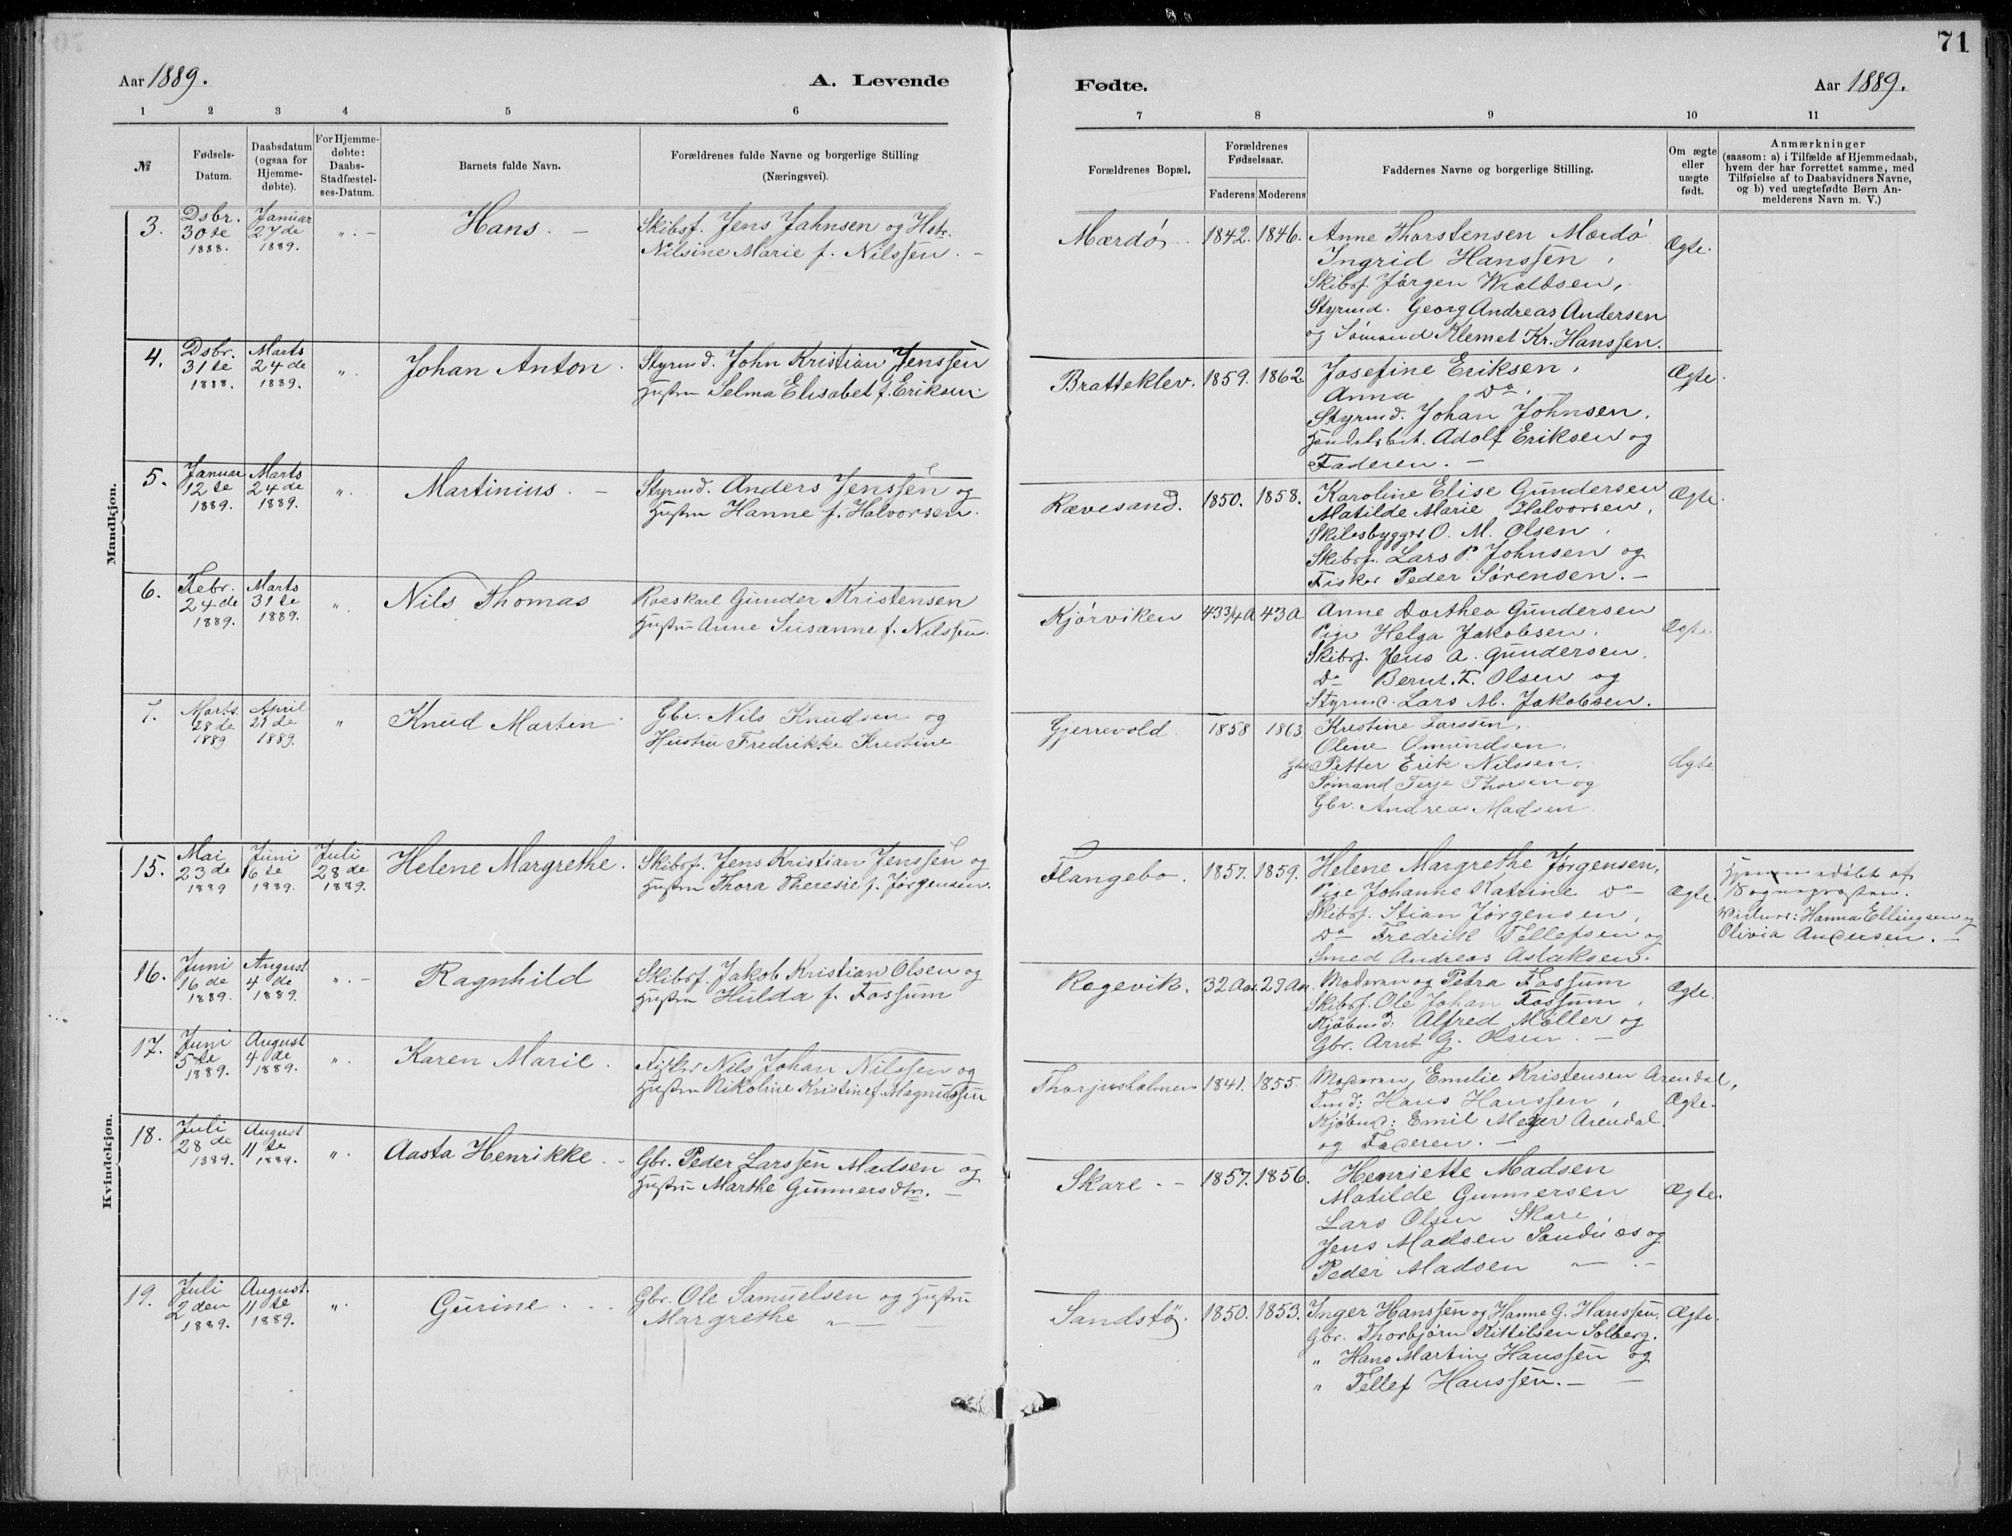 71
Aar 1889.
A. Levende
Fødte.
Aar 1889.
1 2 3 4 5 6 7 8 9 10 11
№
Fødsels-
Datum.
Daabsdatum
(ogsaa for
Hjemme-
døbte).
For Hjemme-
døbte:
Daabs-
Stadfæstel-
ses-Datum.
Barnets fulde Navn.
Forældrenes fulde Navne og borgerlige Stilling
(Næringsvei).
Forældrenes Bopæl.
Forældrenes
Fødselsaar.
Faderens Moderens
Faddernes Navne og borgerlige Stilling.
Om ægte
eller
uægte
født.
Anmærkninger
(saasom: a) i Tilfælde af Hjemmedaab,
hvem der har forrettet samme, med
Tilføielse af to Daabsvidners Navne,
og b) ved uægtefødte Børn An-
melderens Navn m. V.)
Mandkjøn.
3.
Dsbr.
30te
1888.
Januar
27de
1889.
Hans.
Skibsf. Jens Jahnsen og Hstr.
Nilsine Marie f. Nilssen.
Mærdø
1842. 1846.
Anne Thorstensen Mærdø
Ingrid Hanssen,
Skibsf. Jørgen Woldsen,
Styrmd. Georg Andreas Andersen
og Sømand Klemet Kr. Hanssen.
Ægte.
4.
Dsbr.
31te
1888.
Marts
24de
1889.
Johan Anton.
Styrmd. John Kristian Jenssen
Hustru Selma Elisabet f. Eriksen.
Bratteklev.
1859. 1862
Josefine Eriksen,
Anna Do
Styrmd. Johan Johnsen.
Handelsbet. Adolf Eriksen og
Faderen.
Ægte.
5.
Januar
12te
1889.
Marts
24de
1889.
Martinius.
Styrmd. Anders Jenssen og
Hustru Hanne f. Halvorsen.
Rævesand.
1850. 1858.
Karoline Elise Gundersen
Matilde Marie Halvorsen,
Skibsbygger O. M. Olsen,
Skibsf. Lars P. Johnsen og
Fisker Peder Sørensen.
Ægte.
6.
Febr.
24de
1889.
Marts
31te
1889.
Nils Thomas
Roeskarl Gunder Kristensen
Hustru Anne Susanne f. Nilssen.
Kjørviken
43 3/4 A 43 A
Anne Dorthea Gundersen
Pige Helga Jakobsen.
Skibsf. Jens A. Gundersen.
Do Bernt. F. Olsen og
Styrmd. Lars M. Jakobsen.
Ægte.
7.
Marts
28de
1889
April
21de
1889.
Knud Martin
Gbr. Nils Knudsen og
Hustru Fredrikke Kristine
Gjerrevold.
1858 1863
Kristine Larssen.
Oline Omundsen.
Gbr. Petter Erik Nilssen.
Sømand Terje Thorsen og
Gbr. Andreas Madsen
Ægte
Kvindekjøn.
15.
Mai
23de
1889
Juni
6te
1889.
Juli
28de
1889.
Helene Margrethe.
Skibsf. Jens Kristian Jenssen og
Hustru Thora Theresie f. Jørgensen.
Flangebo.
1857. 1859.
Helene Margrethe Jørgensen,
Pige Johanne Katrine Do
Skibsf. Stian Jørgensen,
Do Fredrik Tellefsen og
Smed Andreas Aslaksen.
Ægte.
Hjemmedøbt af
Sognepresten.
Vidner: Hanna Ellingsen og
Olivia Andersen.
16.
Juni
16de
1889.
August
4de
1889.
Ragnhild
Skibsf. Jakob Kristian Olsen og
Hustru Hulda f. Fossum
Rægevik.
32 Aar. 29 Aar.
Moderen og Petra Fossum
Skibsf. Ole Johan Fossum,
Kjøbmd: Alfred Møller og
Gbr. Arnt G. Olsen.
Ægte.
17.
Juni
5te
1889.
August
4de
1889.
Karen Marie.
Fisker Nils Johan Nilssen og
Hustru Nikoline Kristine f. Magnussen
Thorjusholmen
1841. 1855.
Moderen, Emilie Kristensen Arendal,
Tmd: Hans Hanssen,
Kjøbmd: Emil Meyer Arendal
og Faderen.
Ægte.
18.
Juli
28de
1889.
August
11te
1889.
Aasta Henrikke.
Gbr. Peder Larssen Madsen og
Hustru Marthe Gunnersdtr.
Skare.
1857. 1856.
Henriette Madsen
Matilde Gunnersen
Lars Olsen Skare,
Jens Madsen Sandnæs og
Peder Madsen
Ægte.
19.
Juli
2den
1889.
August
11te
1889.
Gurine.
Gbr. Ole Samuelsen og Hustru
Margrethe
Sandstø.
1850. 1853.
Inger Hanssen og Hanne G. Hanssen,
Gbr. Thorbjørn Kittilsen Solberg.
" Hans Martin Hanssen og
" Tellef Hanssen.
Ægte.